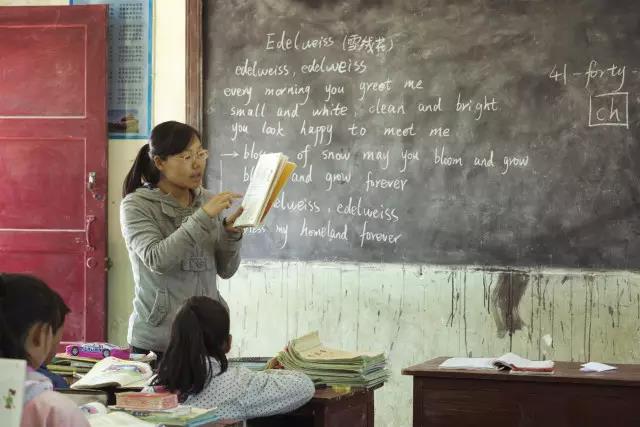 Edelweiss (雪绒花)
edelweiss, edelweiss
every morning you greet me
small and white, clean and bright
you look happy to meet me
→ of snow may you bloom and grow
and grow forever
edelweiss
my homeland forever
41-forty-
ch